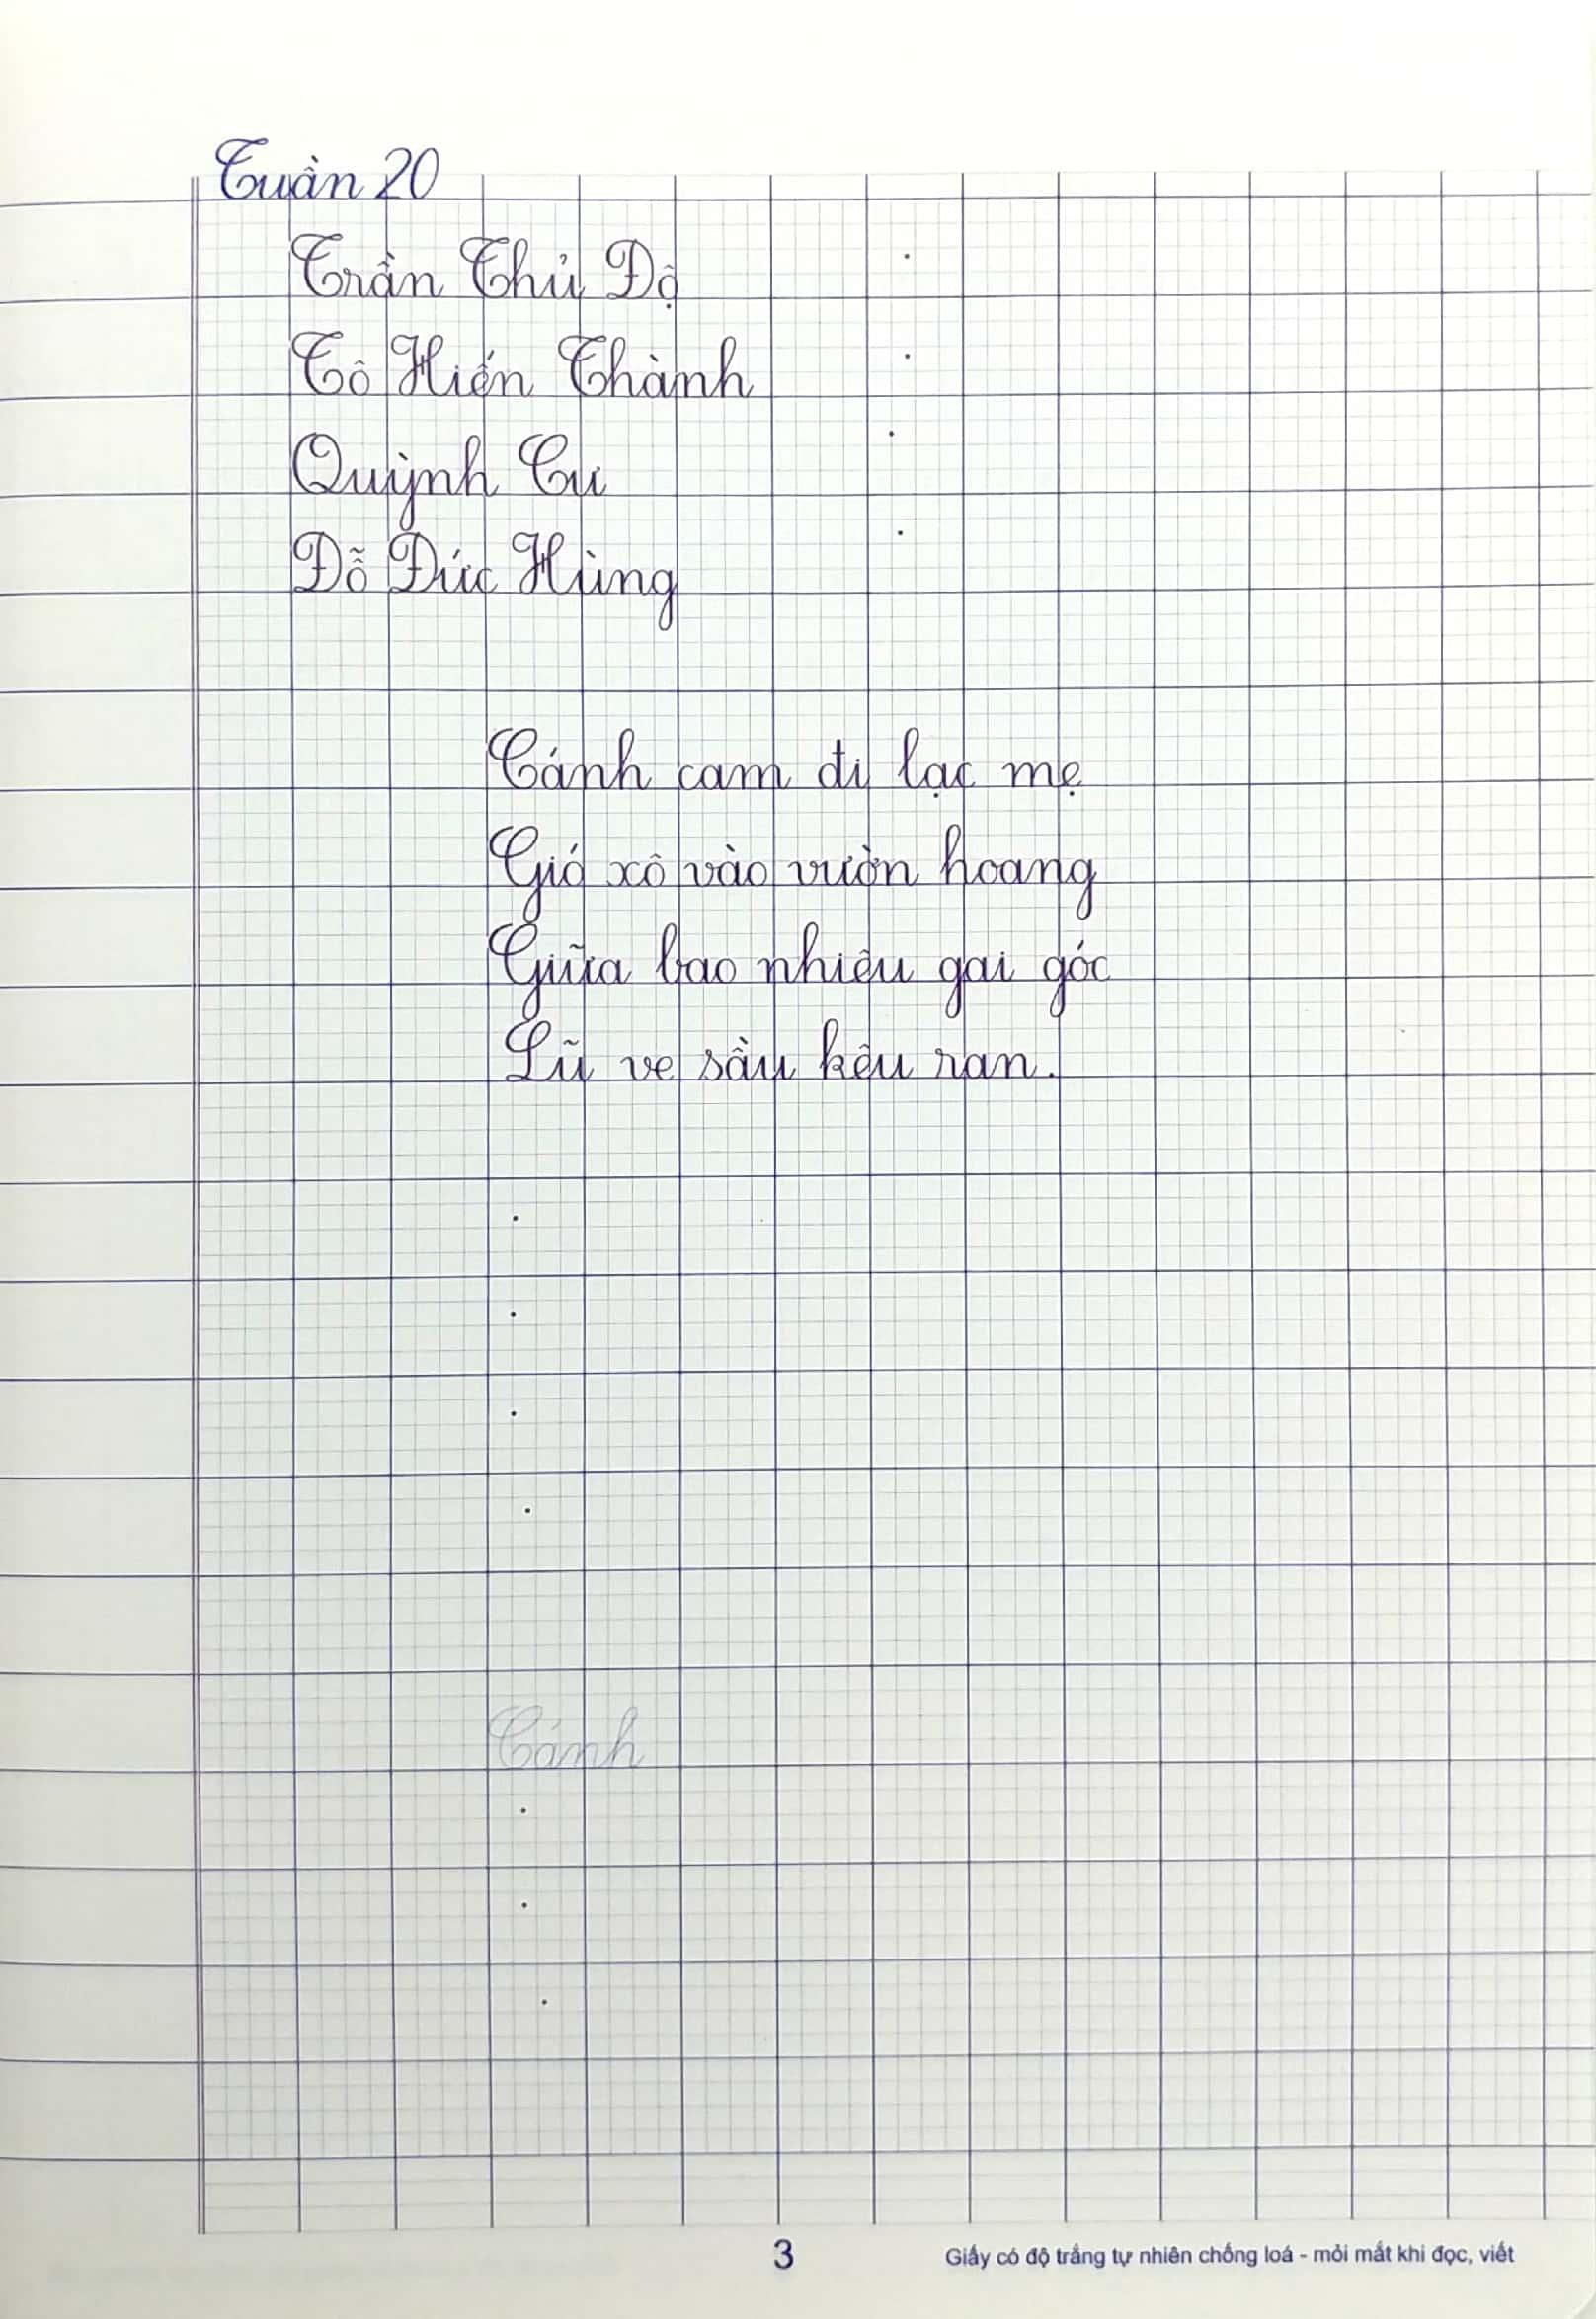 Tuần 20
Trần Thủ Độ
Tô Hiến Thành
Quỳnh Cư
Đỗ Đức Hùng
Cánh cam đi lạc mẹ
Gió xô vào vườn hoang
Giữa bao nhiêu gai góc
Lũ ve sầu kêu ran.
Cánh
3
Giấy có độ trắng tự nhiên chống loá - mỏi mắt khi đọc, viết